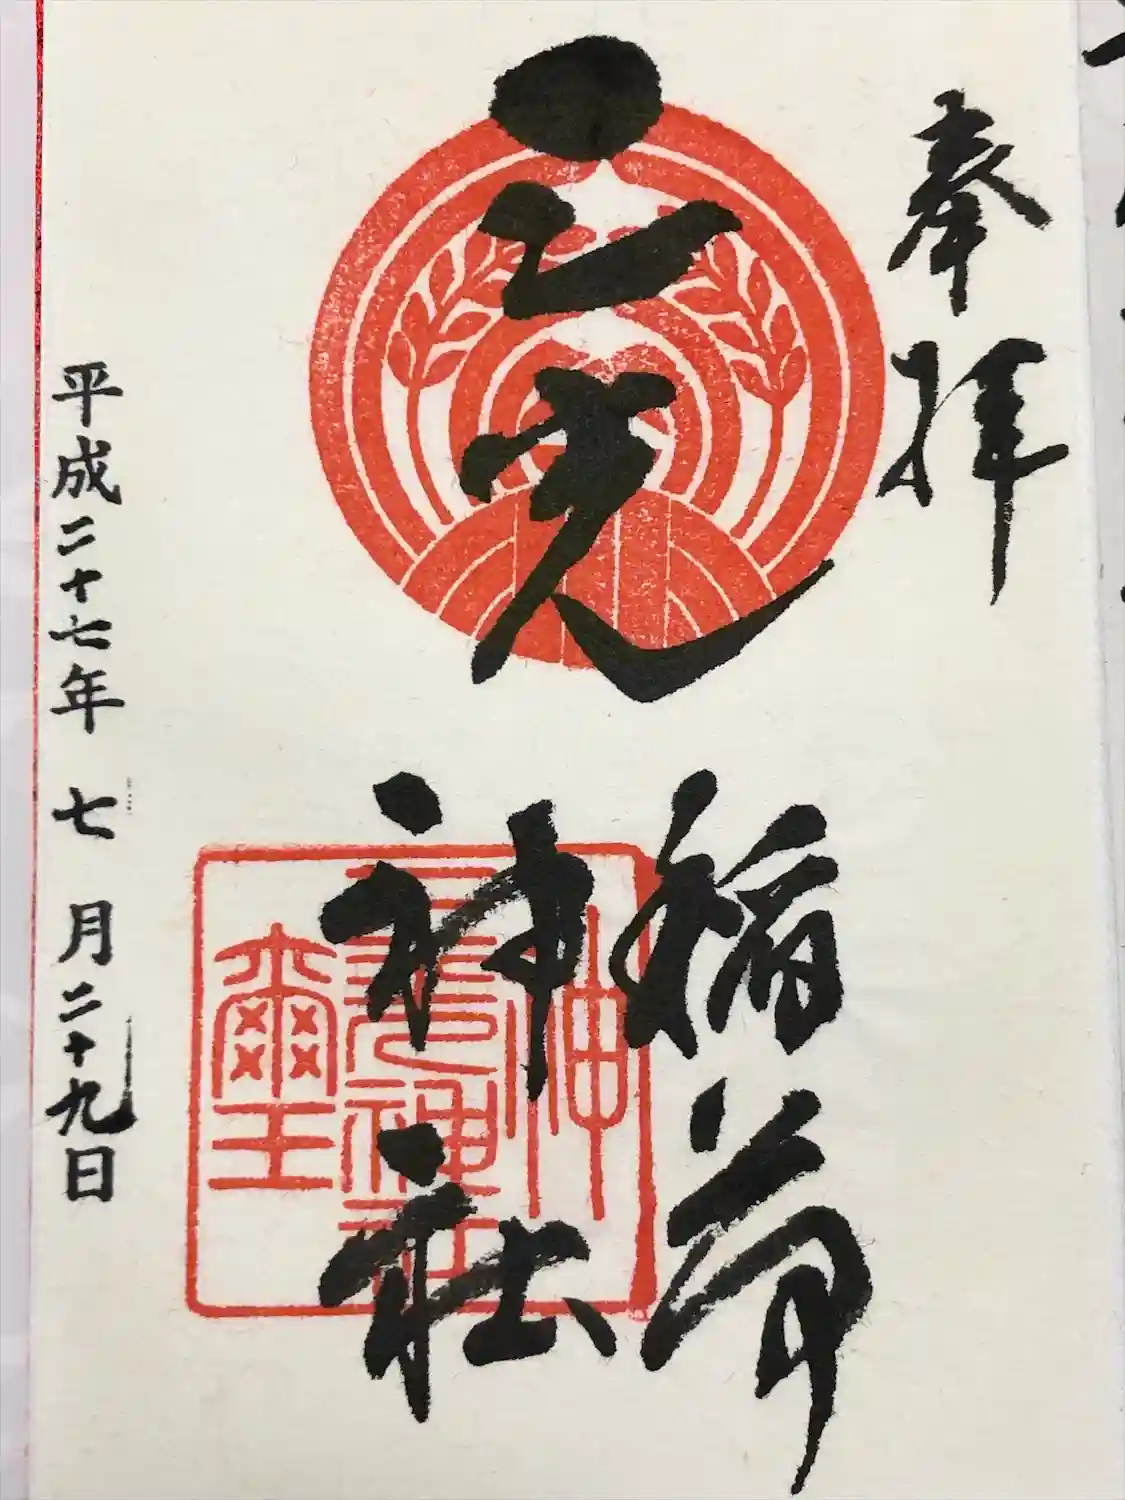 奉拝
三光
稲荷
神社
平成二十七年 七月二十九日
三光神社
神璽